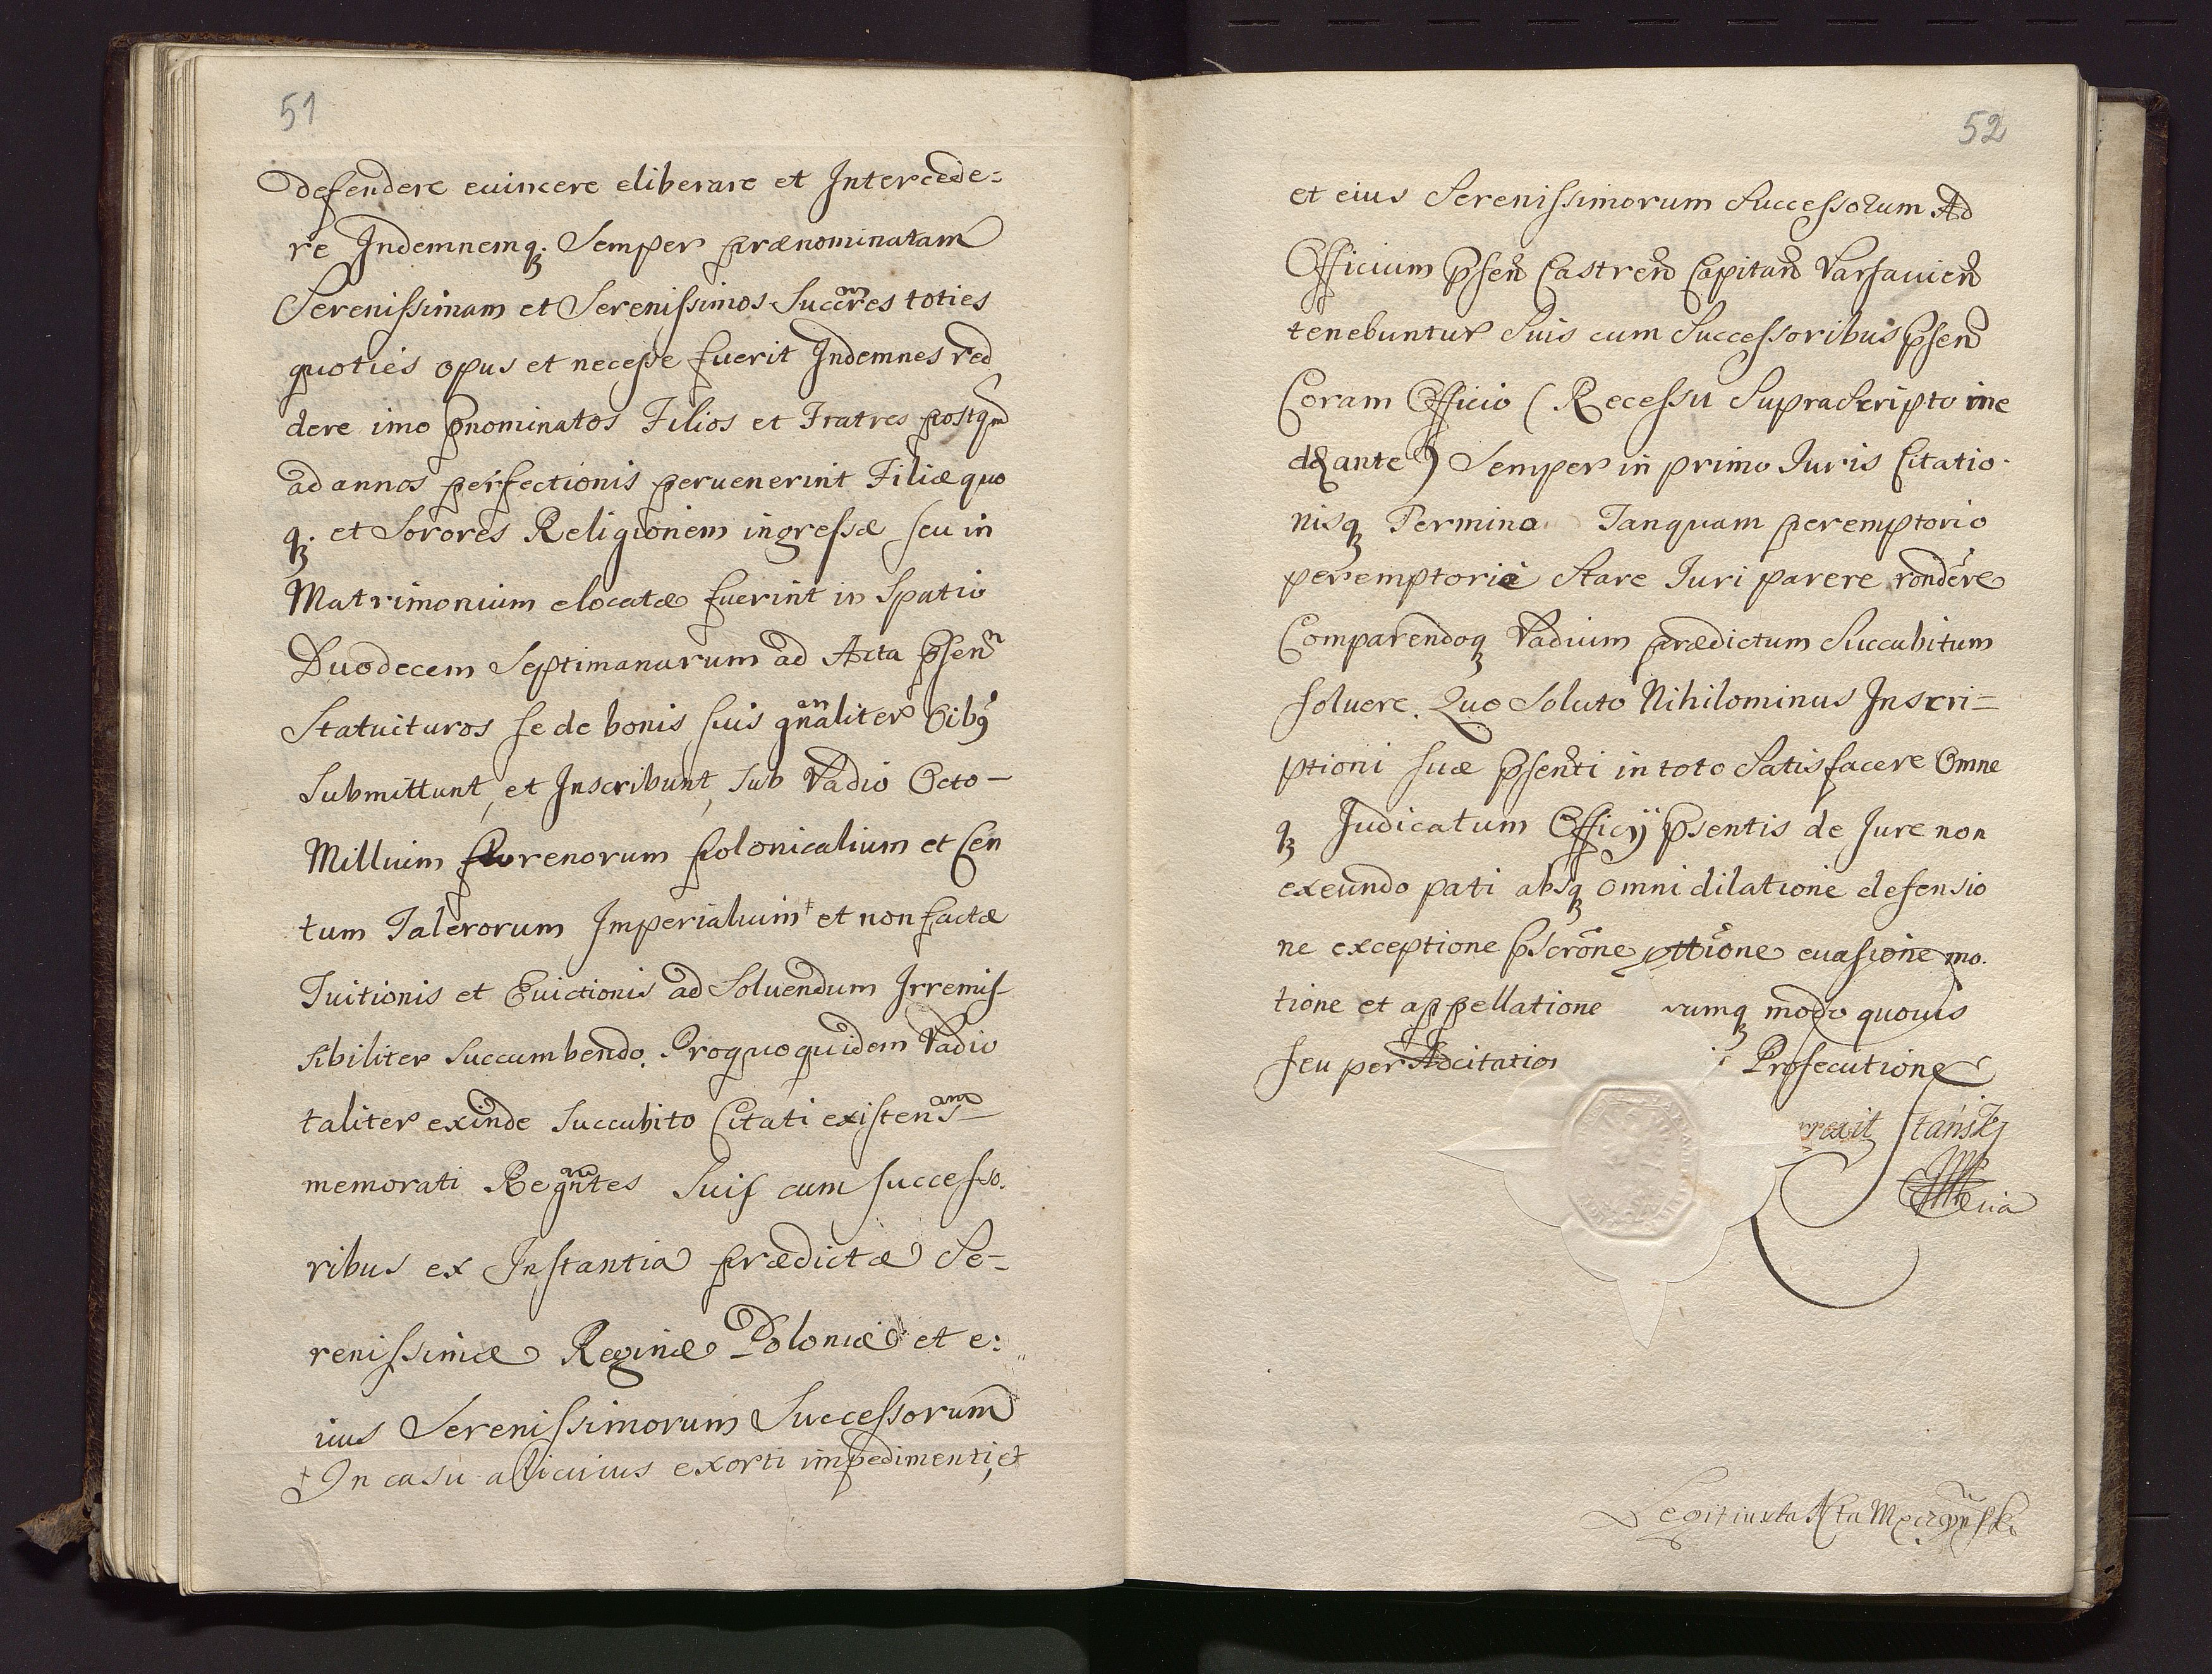 51
defendere euincere eliberare et Intercede=
re Indemnemq; Semper prænominatam
Serenissimam et Serenissimos Succres toties
quoties opus et necesse fuerit Indemnes red
dere imo pnominatos Filios et Fratres postqm
ad annos perfectionis peruenerint Filiæ quo
q; et Sorores Religionem ingressæ seu in
Matrimonium elocatæ fuerint in Spatio
Duodecem Septimanarum ad Acta psen
Statuituros se de bonis suis gnaliter Oibq
Submittunt, et Inscribunt, Sub Vadio Octo-
Millium florenorum polonicalium et Cen
tum Talerorum Imperialium † et non factæ
Tuitionis et Euictionis ad Soluendum Irremis-
sibiliter Succumbendo. Pro quo quidem Vadio
taliter exinde Succubito Citati existen
memorati Regntes Suis cum successo.
ribus ex Instantia prædictæ Se-
renissimæ Reginæ Poloniæ et e:
ius Serenissimorum Successorum
† In casu alicuius exorti impedimenti, et
52
et eius Serenissimorum Successorum Ad
Officium psen Castren Capitan Varsauien
tenebuntur Suis cum Successoribus psen
Coram Officio ( Recessu Supra Scripto me
dante ) Semper in primo Iuris Citatio.
nisq Termino Tanquam peremptorio
peremptorie Stare Iuri parere rondere
Comparendoq Vadium prædictum Succubitum
soluere. Quo Soluto Nihilominus Inscri-
ptioni suæ psenti in toto Satisfacere Omne
q Judicatum Officij psentis de Jure non
exeundo pati absq omni dilatione defensio
ne exceptione pscrone euasione mo.
tione et appellatione rumq modo quouis
seu per Adcitatio Prosecutione
Legit iuxta Acta